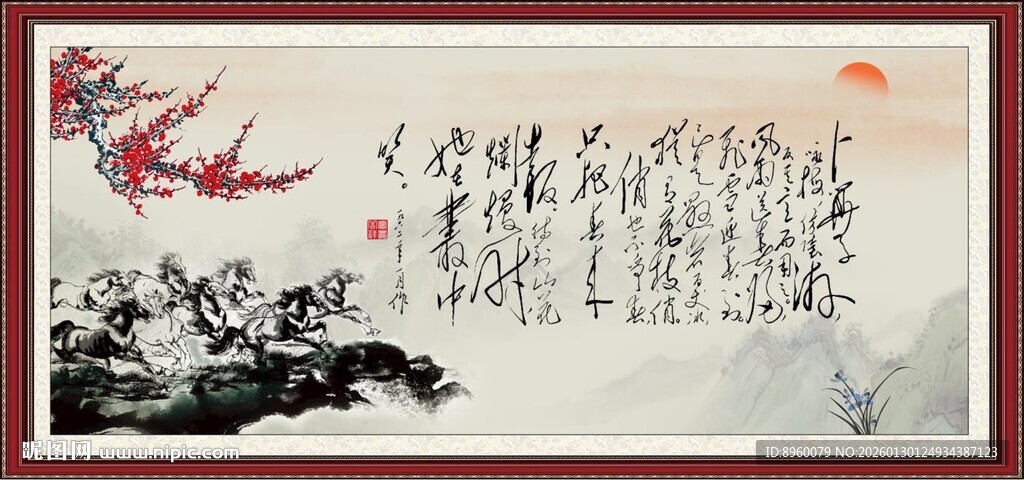 卜算子
咏梅
反其意而用之
风雨送春归
飞雪迎春到
已是悬崖百丈冰
犹有花枝俏。
俏也不争春
只把春来
报，待到山花
烂熳时
她在丛中
笑。
昵图网 www.nipic.com
ID:8960079 NO:20260130124934387123